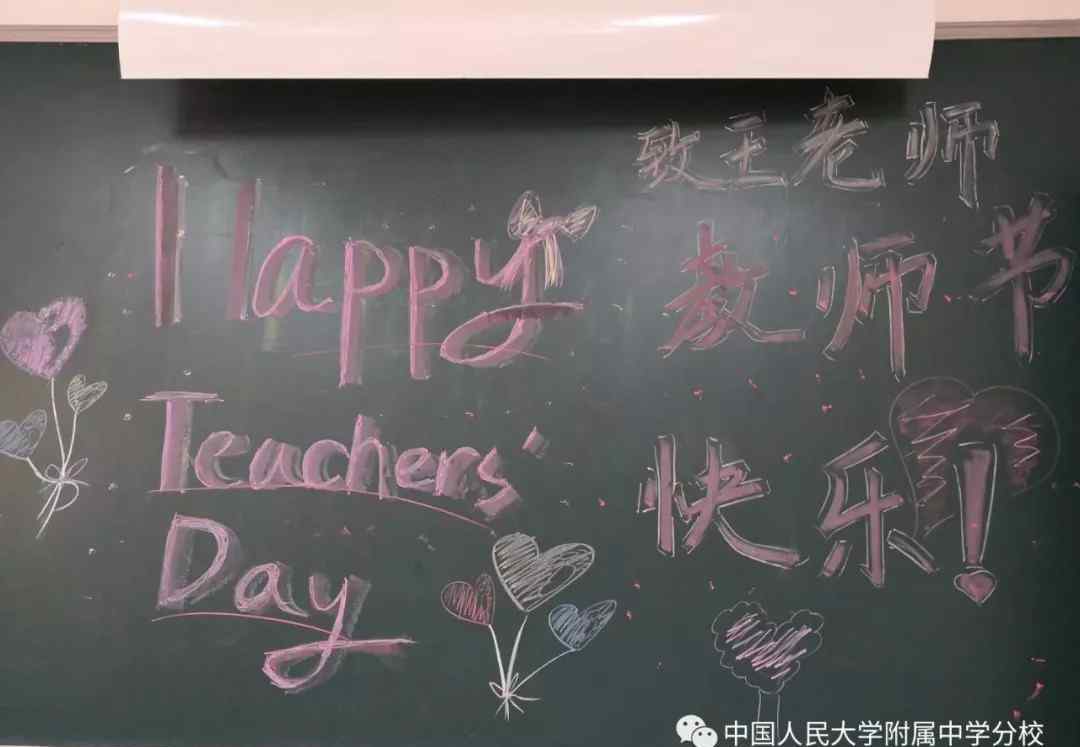 Happy
Teachers'
Day
致王老师
教师节
快乐!
中国人民大学附属中学分校